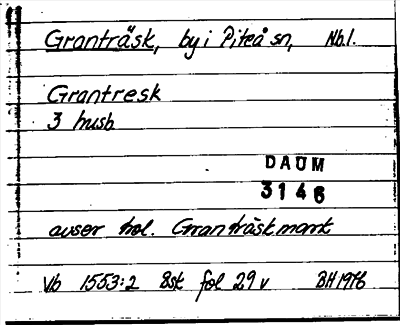 Granträsk, by i Piteå sn, Nb.l.
Grantresk
3 husb
DAUM
3146
avser trol. Granträskmark
Vb 1553:2 8sk fol 29 v BH 1976